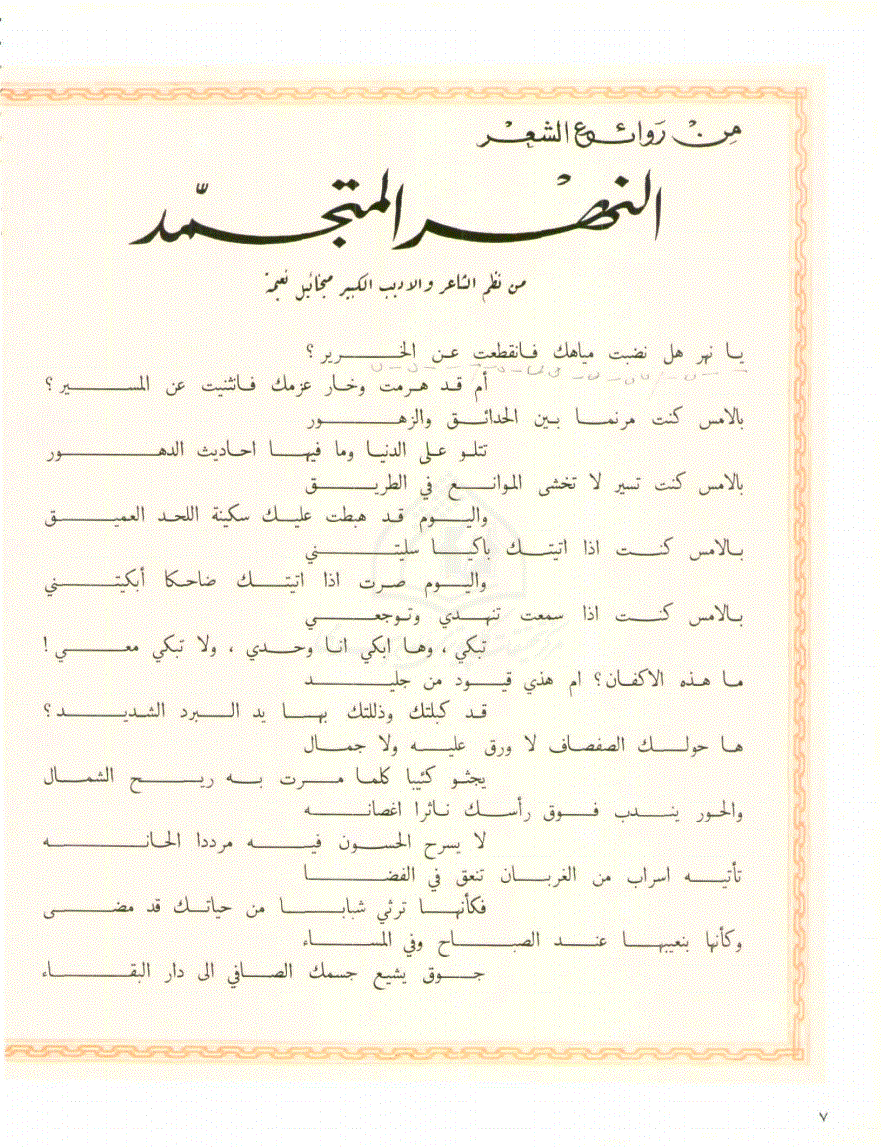 مِنْ رَوائِع الشعْر
النهْر المتجمّد
من نظم الشاعر والاديب الكبير ميخائيل نعيمة
يا نهر هل نضبت مياهك فانقطعت عن الخرير ؟
أم قد هرمت وخار عزمك فانثنيت عن المسير ؟
بالامس كنت مرنما بين الحدائق والزهور
تتلو على الدنيا وما فيها احاديث الدهور
بالامس كنت تسير لا تخشى الموانع في الطريق
واليوم قد هبطت عليك سكينة اللحد العميق
بالامس كنت اذا اتيتك باكيا سليتني
واليوم صرت اذا اتيتك ضاحكا أبكيتني
بالامس كنت اذا سمعت تنهدي وتوجعي
تبكي ، وها ابكي انا وحدي ، ولا تبكي معي !
ما هذه الاكفان ؟ ام هذي قيود من جليد
قد كبلتك وذللتك بها يد البرد الشديد ؟
ها حولك الصفصاف لا ورق عليه ولا جمال
يجثو كئيبا كلما مرت به ريح الشمال
والحور يندب فوق رأسك ناثرا اغصانه
لا يسرح الحسون فيه مرددا الحانه
تأتيه اسراب من الغربان تنعق في الفضا
فكأنها ترثي شبابا من حياتك قد مضى
وكأنها بنعيبها عند الصباح وفي المساء
جوق يشيع جسمك الصافي الى دار البقاء
٧